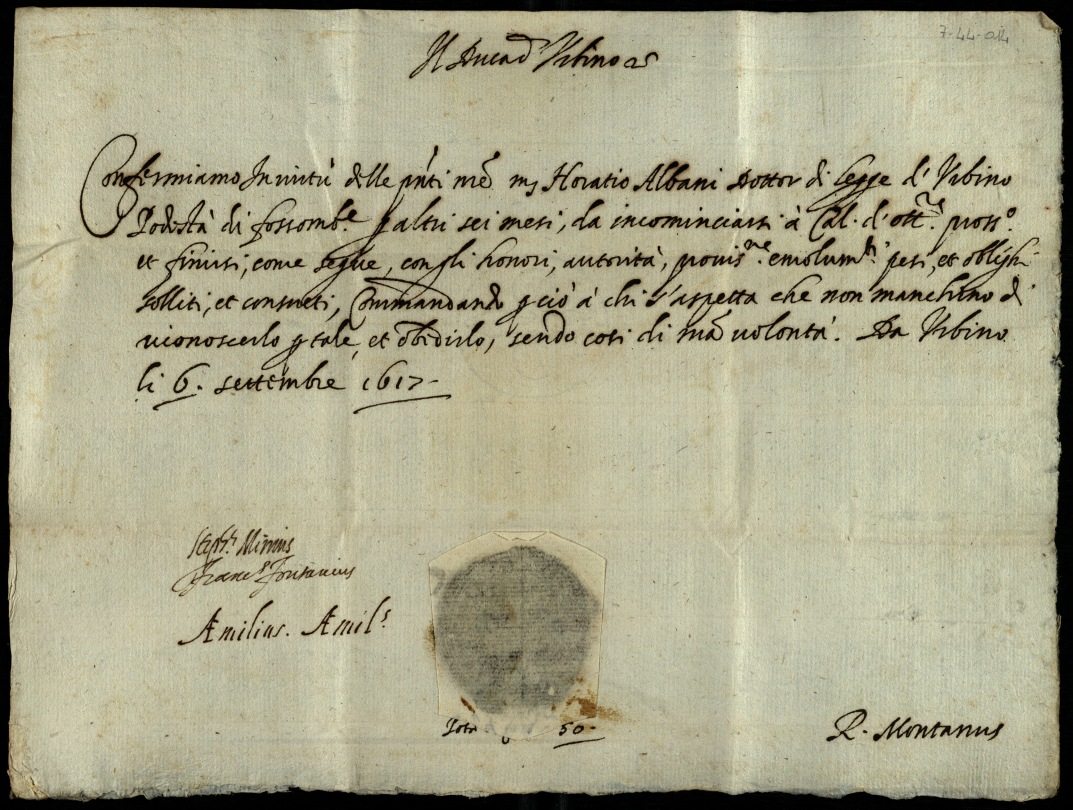 7-44-014
Il Duca d'Urbino &c
Confermiamo In virtù delle p'nti n're m's Horatio Albani Dottor di legge d'Urbino
Podestà di fossomb.e p altri sei mesi, da incominciarsi à Cal. d'ott.re pross.o
et finirsi, come segue, con gli honori, autorità, provis.ne emolum.ti pesi, et oblighi
solliti, et consueti, Commandando p ciò à chi s'aspetta che non manchino di
riconoscerlo p tale, et obedirlo, sendo così di n'ra volontà. Da Urbino
li 6. settembre 1617-
Steph.s
Franc.s
Æmilius. Æmil.s
50-
R. Montanus